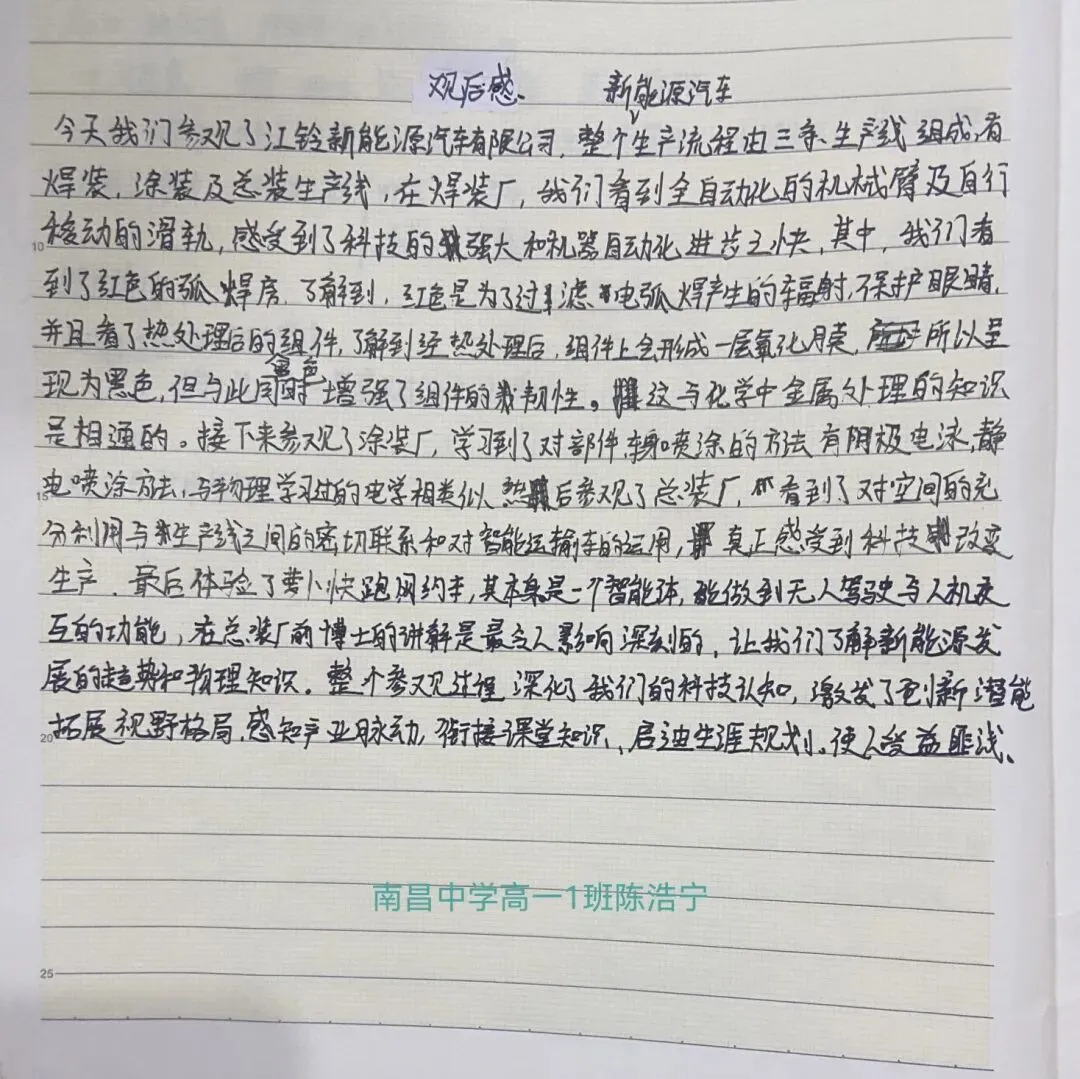 观后感、
新能源汽车
今天我们参观了江铃新能源汽车有限公司,整个生产流程由三条生产线组成,有
焊装,涂装及总装生产线,在焊装厂,我们看到全自动化的机械臂及自行
10 移动的滑轨,感受到了科技的强大和机器自动化进步之快,其中,我们看
到了红色的弧焊房,了解到,红色是为了过滤电弧焊产生的辐射,保护眼睛,
并且看了热处理后的组件,了解到经热处理后,组件上会形成一层氧化膜,所以呈
现为黑色,但与此同时增强了组件的韧性。这与化学中金属处理的知识
是相通的。接下来参观了涂装厂,学习到了对部件,车身喷涂的方法有阴极电泳,静
15 电喷涂方法,与物理学习过的电学相类似,然后参观了总装厂,看到了对空间的充
分利用与生产线之间的密切联系和对智能运输车的运用,真正感受到科技改变
生产,最后体验了萝卜快跑网约车,其本身是一个智能体,能做到无人驾驶与人机交
互的功能,在总装厂前博士的讲解是最令人影响深刻的,让我们了解新能源发
展的趋势和物理知识。整个参观过程,深化了我们的科技认知,激发了创新潜能
20 拓展视野格局,感知产业脉动,衔接课堂知识、启迪生涯规划。使人受益匪浅、
南昌中学高一1班陈浩宁
25